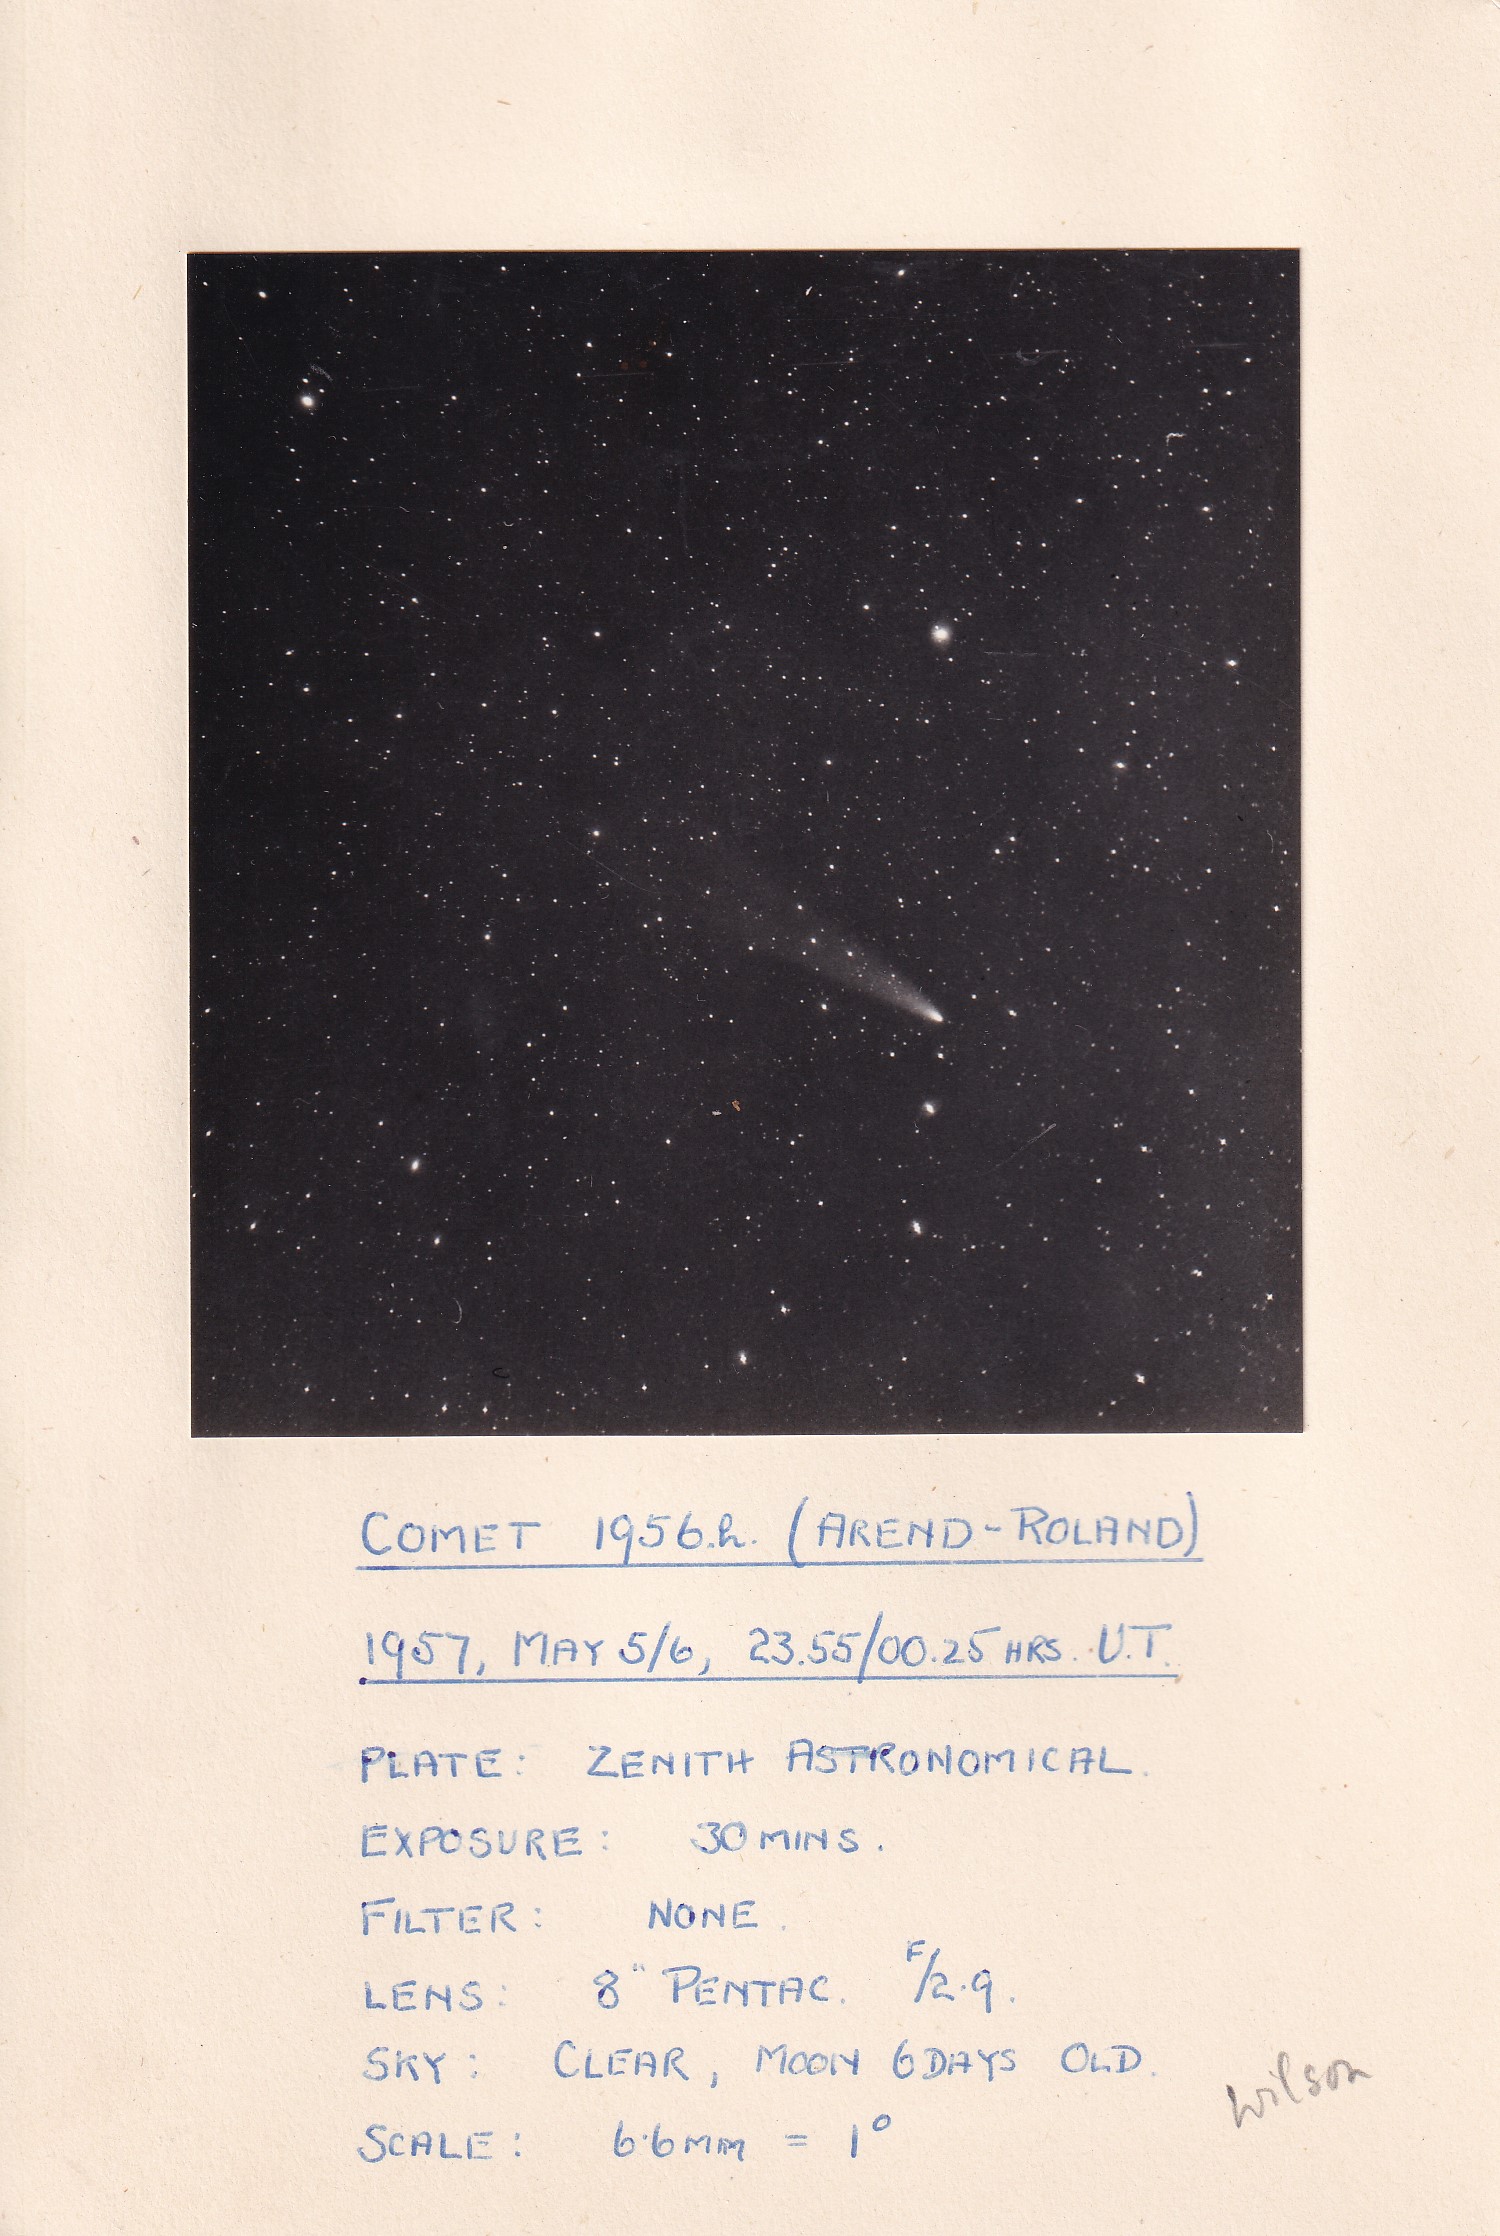 COMET 1956.h. (AREND-ROLAND)
1957, MAY 5/6, 23.55/00.25 HRS. U.T.
PLATE: ZENITH ASTRONOMICAL.
EXPOSURE: 30 MINS.
FILTER: NONE.
LENS: 8" PENTAC. F/2.9.
SKY: CLEAR, MOON 6 DAYS OLD.
Wilson
SCALE: 6.6 MM = 1°